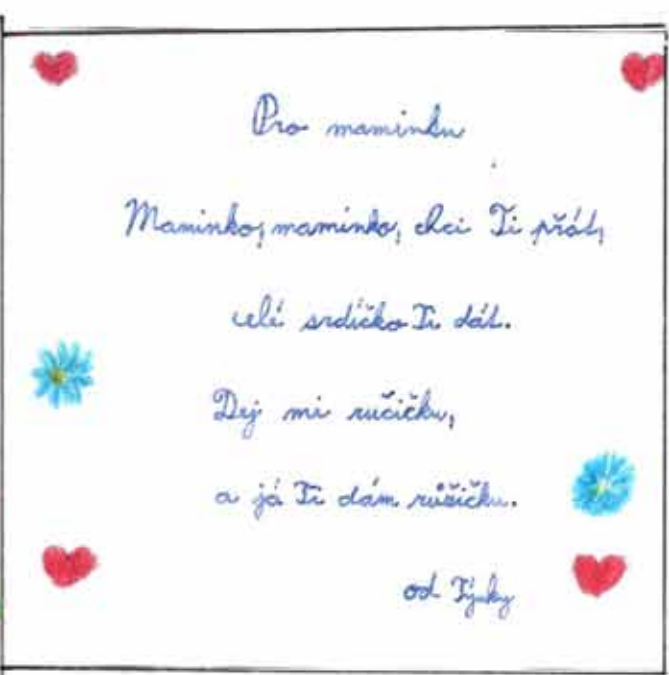 Pro maminku
Maminko, maminko, chci Ti přát,
celé srdíčko Ti dát.
Dej mi ručičku,
a já Ti dám růžičku.
od Týnky